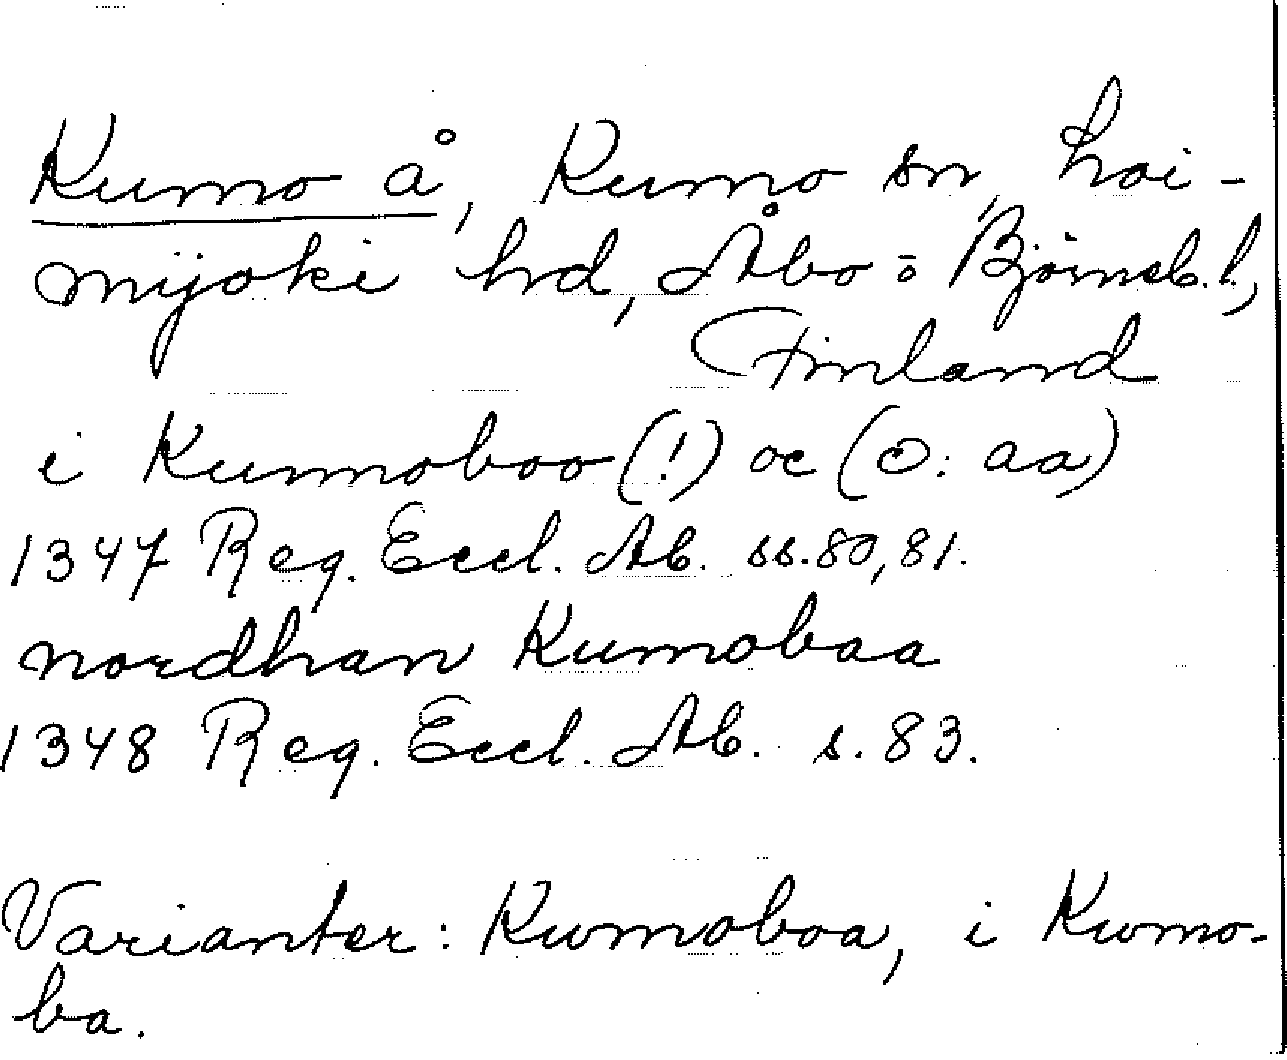 Kumo å, Kumo sn, Loi-
mijoki hd, Åbo = Björneb. l.,
Finland
i Kumoboo (!) oc (ɔ: aa)
1347 Reg. Eccl. Ab. ss. 80, 81.
nordhan Kumobaa
1348 Reg. Eccl. Ab. s. 83.
Varianter: Kwmoboa, i Kwmo-
ba.